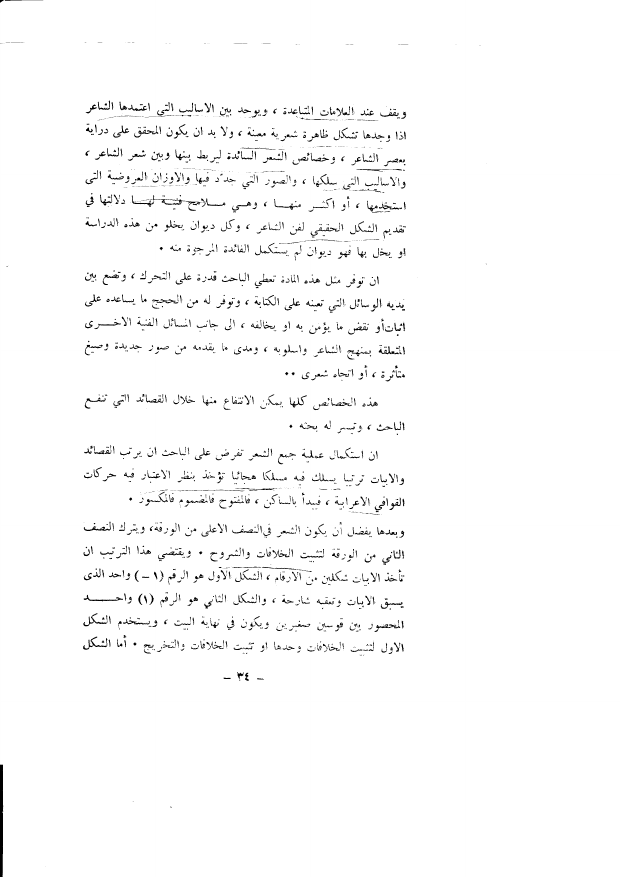 ويقف عند العلامات المتباعدة ، ويوحد بين الاساليب التي اعتمدها الشاعر
اذا وجدها تشكل ظاهرة شعرية معينة ، ولا بد ان يكون المحقق على دراية
بعصر الشاعر ، وخصائص الشعر السائدة ليربط بينها وبين شعر الشاعر ،
والاساليب التي سلكها ، والصور التي جدد فيها والاوزان العروضية التى
استخدمها ، أو اكثر منها ، وهي ملامح فنية لها دلالتها في
تقديم الشكل الحقيقي لفن الشاعر ، وكل ديوان يخلو من هذه الدراسة
او يخل بها فهو ديوان لم يستكمل الفائدة المرجوة منه •
ان توفر مثل هذه المادة تعطي الباحث قدرة على التحرك ، وتضع بين
يديه الوسائل التي تعينه على الكتابة ، وتوفر له من الحجج ما يساعده على
اثبات أو نقض ما يؤمن به او يخالفه ، الى جانب المسائل الفنية الاخرى
المتعلقة بمنهج الشاعر واسلوبه ، ومدى ما يقدمه من صور جديدة وصيغ
متأثرة ، أو اتجاه شعرى ••
هذه الخصائص كلها يمكن الانتفاع منها خلال القصائد التي تنفع
الباحث ، وتيسر له بحثه •
ان استكمال عملية جمع الشعر تفرض على الباحث ان يرتب القصائد
والابيات ترتيبا يسلك فيه مسلكا هجائيا تؤخذ بنظر الاعتبار فيه حركات
القوافي الاعرابية ، فيبدأ بالساكن ، فالمفتوح فالمضموم فالمكسور •
وبعدها يفضل أن يكون الشعر في النصف الاعلى من الورقة، ويترك النصف
الثاني من الورقة لتثبيت الخلافات والشروح • ويقتضي هذا الترتيب ان
تأخذ الابيات شكلين من الأرقام ، الشكل الأول هو الرقم (١ –) واحد الذى
يسبق الابيات وتعقبه شارحة ، والشكل الثاني هو الرقم (١) واحد
المحصور بين قوسين صغيرين ويكون في نهاية البيت ، ويستخدم الشكل
الاول لتثبيت الخلافات وحدها او تثبيت الخلافات والتخريج • أما الشكل
– ٣٤ –